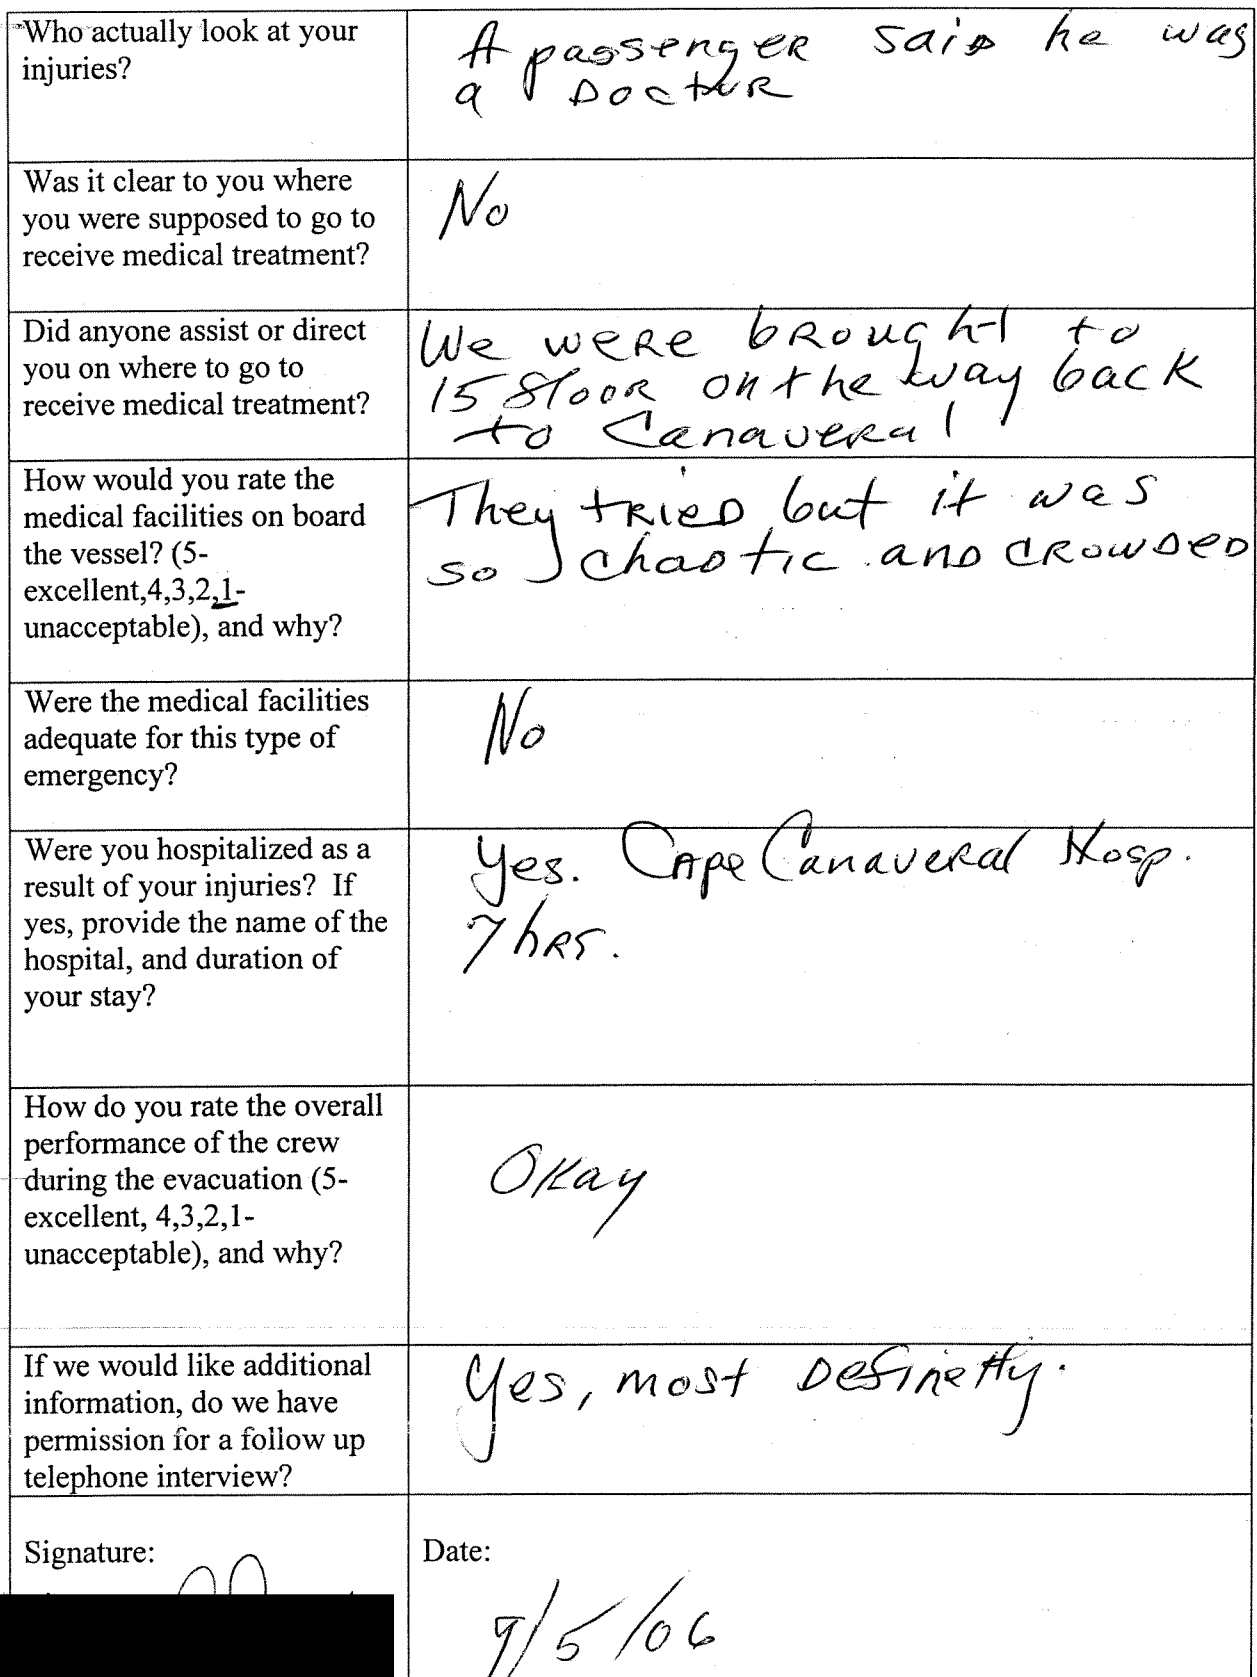 Who actually look at your
injuries?
A passenger said he was
a Doctor
Was it clear to you where
you were supposed to go to
receive medical treatment?
No
Did anyone assist or direct
you on where to go to
receive medical treatment?
We were brought to
15 floor on the way back
to Canaveral
How would you rate the
medical facilities on board
the vessel? (5-
excellent,4,3,2,1-
unacceptable), and why?
They tried but it was
so chaotic and crowded
Were the medical facilities
adequate for this type of
emergency?
No
Were you hospitalized as a
result of your injuries? If
yes, provide the name of the
hospital, and duration of
your stay?
Yes. Cape Canaveral Hosp.
7 hrs.
How do you rate the overall
performance of the crew
during the evacuation (5-
excellent, 4,3,2,1-
unacceptable), and why?
Okay
If we would like additional
information, do we have
permission for a follow up
telephone interview?
Yes, most definetly.
Signature:
Date:
9/5/06